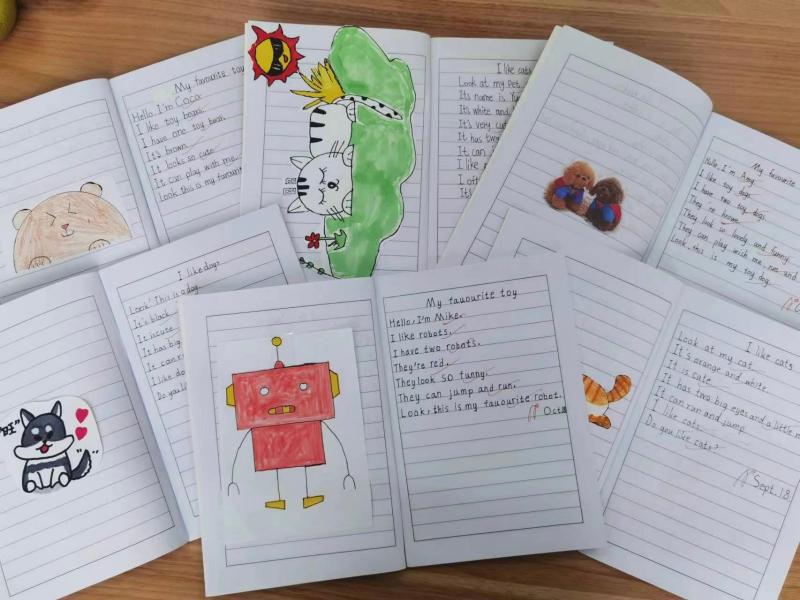 My favourite toy
Hello, I'm Coco.
I like toy bears.
I have one toy bear.
It's brown.
It looks so cute.
It can play with me.
Look, this is my favourite
I like cats
Look at my pet
Its name is
It's white and
It's very cute
It has two
It can
I like
I
It's
My favourite
Hello, I'm Amy.
I like toy dogs.
I have two toy dogs.
They're brown.
They look so lovely and funny.
They can play with me, run and
Look, this is my toy dog.
I like dogs
Look! This is a dog.
It's black
It is cute
It has big
It can
I like do
Do you
"旺"
My favourite toy
Hello, I'm Mike.
I like robots.
I have two robots.
They're red.
They look so funny.
They can jump and run.
Look, this is my favourite robot.
A+
Oct.
I like cats
Look at my cat.
It's orange and white.
It is cute.
It has two big eyes and a little
It can run and jump.
I like cats.
Do you like cats?
A+ Sept. 18